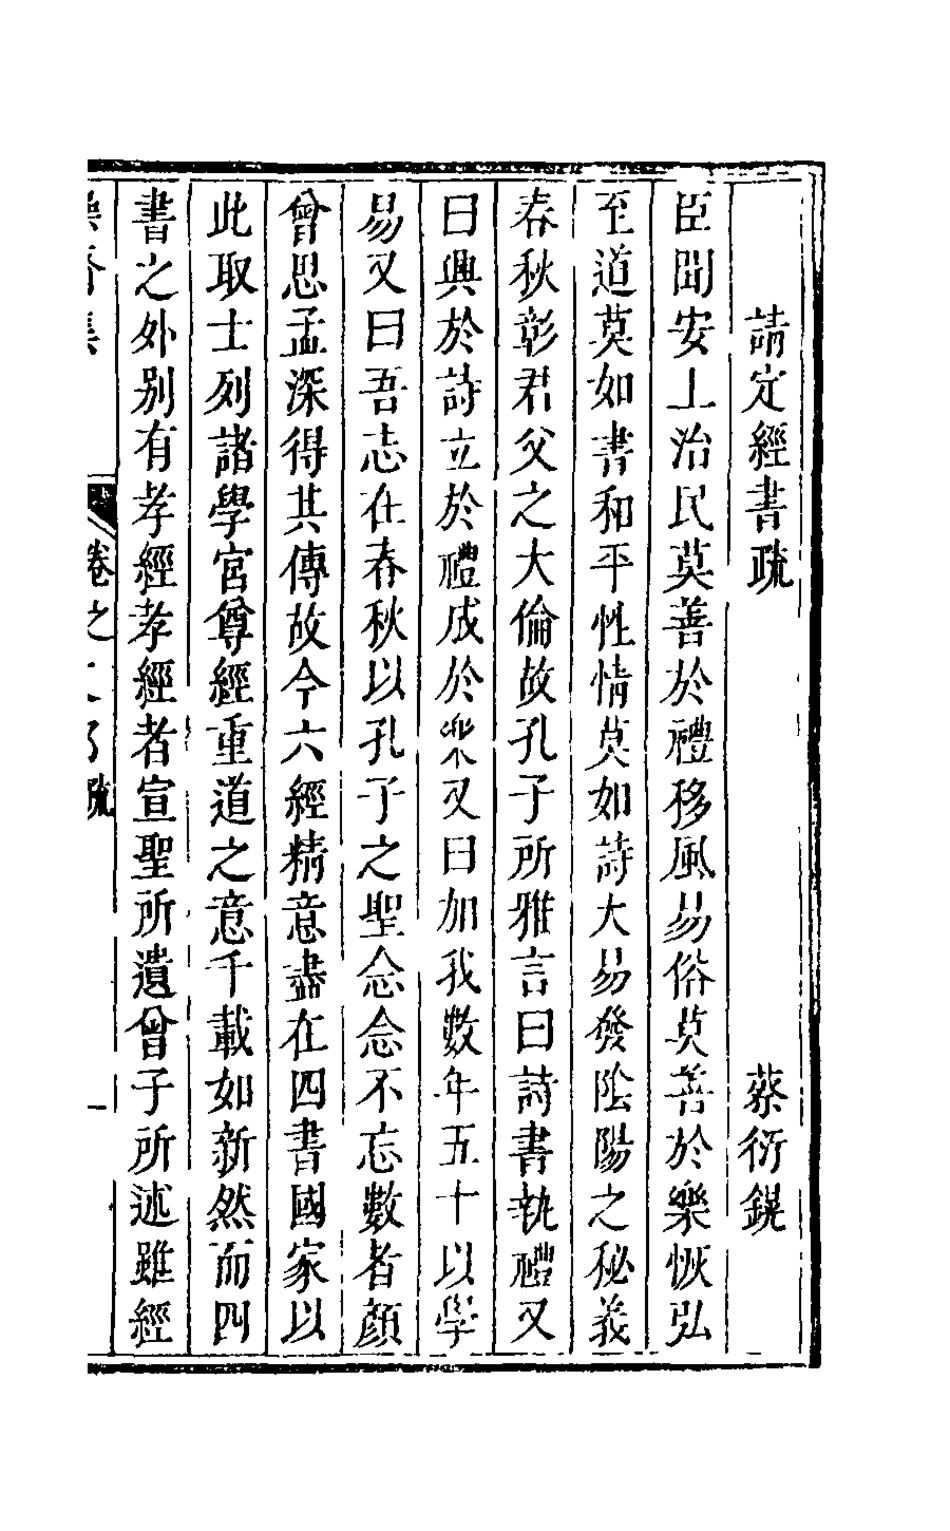 請定經書疏　蔡衍鎤
臣聞安上治民莫善於禮移風易俗莫善於樂恢弘
至道莫如書和平性情莫如詩大易發陰陽之秘義
春秋彰君父之大倫故孔子所雅言曰詩書執禮又
曰興於詩立於禮成於樂又曰加我數年五十以學
易又曰吾志在春秋以孔子之聖念念不忘數者顏
曾思孟深得其傳故今六經精意盡在四書國家以
此取士列諸學宮尊經重道之意千載如新然而四
書之外別有孝經孝經者宣聖所遺曾子所述雖經
卷之二 疏 一